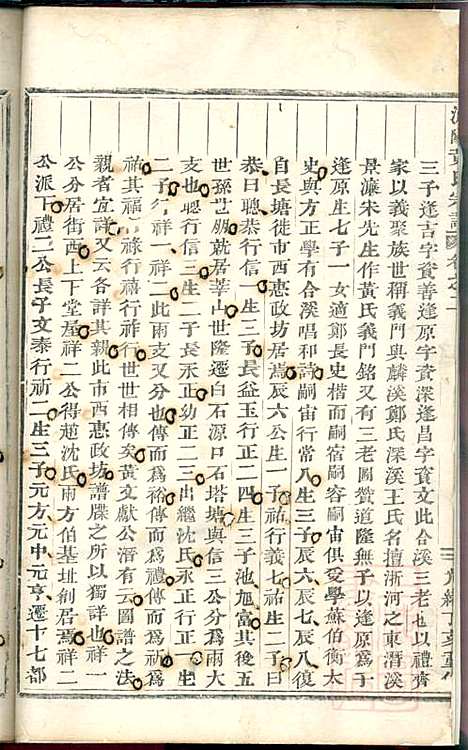 黃氏宗譜 卷之二
三子逢吉字資善逢原字資深逢昌字資文此合溪三老也以禮齊
家以義聚族世稱義門與麟溪鄭氏深溪王氏名擅浙河之東潛溪
景濂宋先生作黃氏義門銘又有三老圖贊道隆無子以逢原爲
逢原生七子一女適鄭長史楷而嗣宿嗣容嗣宙俱受學蘇伯衡太
史與方正學有合溪唱和詩嗣宙行常八生三子辰六辰七辰八復
自長塘徙市西惠政坊居焉辰六公生一子祐行義七祐生二子曰
恭曰聰恭行信一生三子長益玉行正二四生三子池旭富其後五
世孫世勝就居莘山世隆遷白石源口石塔塘與信三公分爲兩
支也聰行信三生二子長永正幼正二三出繼沈氏永正行正一生
二子行祥一祥二此兩支又分也傳而爲裕傳而爲禮傳而爲祈爲
祐其福行祿行禧行祚行世世相傳矣黃文獻公溍有云圖譜之法
親者宜詳又云各詳其親此市西惠政坊譜牒之所以獨詳也祥一
公分居街西上下堂屋祥二公得趙沈氏兩方伯基址創居焉祥二
公派下禮二公長子文泰行祈二生三子元方元中元亨遷十七都
光緒丁亥重修